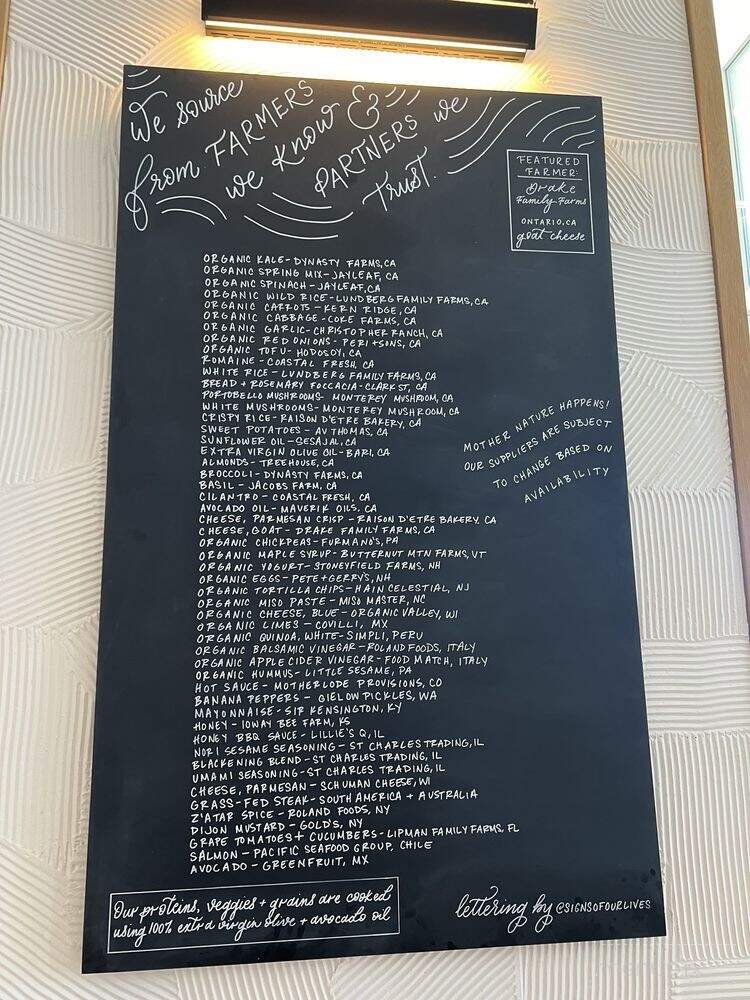 We source
from FARMERS
we know &
PARTNERS we
trust.
FEATURED
FARMER:
Drake
Family Farms
ONTARIO, CA
goat cheese
ORGANIC KALE - DYNASTY FARMS, CA
ORGANIC SPRING MIX - JAYLEAF, CA
ORGANIC SPINACH - JAYLEAF, CA
ORGANIC WILD RICE - LUNDBERG FAMILY FARMS, CA
ORGANIC CARROTS - KERN RIDGE, CA
ORGANIC CABBAGE - COKE FARMS, CA
ORGANIC GARLIC - CHRISTOPHER RANCH, CA
ORGANIC RED ONIONS - PERI + SONS, CA
ORGANIC TOFU - HODOSOY, CA
ROMAINE - COASTAL FRESH, CA
WHITE RICE - LUNDBERG FAMILY FARMS, CA
BREAD + ROSEMARY FOCCACIA - CLARK ST, CA
PORTOBELLO MUSHROOMS - MONTEREY MUSHROOM, CA
WHITE MUSHROOMS - MONTEREY MUSHROOM, CA
CRISPY RICE - RAISON D'ETRE BAKERY, CA
SWEET POTATOES - AV THOMAS, CA
SUNFLOWER OIL - SESAJAL, CA
EXTRA VIRGIN OLIVE OIL - BARI, CA
ALMONDS - TREEHOUSE, CA
BROCCOLI - DYNASTY FARMS, CA
BASIL - JACOBS FARM, CA
CILANTRO - COASTAL FRESH, CA
AVOCADO OIL - MAVERIK OILS, CA
CHEESE, PARMESAN CRISP - RAISON D'ETRE BAKERY, CA
CHEESE, GOAT - DRAKE FAMILY FARMS, CA
ORGANIC CHICKPEAS - FURMANO'S, PA
ORGANIC MAPLE SYRUP - BUTTERNUT MTN FARMS, VT
ORGANIC YOGURT - STONEYFIELD FARMS, NH
ORGANIC EGGS - PETE + GERRY'S, NH
ORGANIC TORTILLA CHIPS - HAIN CELESTIAL, NJ
ORGANIC MISO PASTE - MISO MASTER, NC
ORGANIC CHEESE, BLUE - ORGANIC VALLEY, WI
ORGANIC LIMES - COVILLI, MX
ORGANIC QUINOA, WHITE - SIMPLI, PERU
ORGANIC BALSAMIC VINEGAR - ROLAND FOODS, ITALY
ORGANIC APPLE CIDER VINEGAR - FOOD MATCH, ITALY
ORGANIC HUMMUS - LITTLE SESAME, PA
HOT SAUCE - MOTHERLODE PROVISIONS, CO
BANANA PEPPERS - GIELOW PICKLES, WA
MAYONNAISE - SIR KENSINGTON, KY
HONEY - IOWAY BEE FARM, KS
HONEY BBQ SAUCE - LILLIE'S Q, IL
NORI SESAME SEASONING - ST CHARLES TRADING, IL
BLACKENING BLEND - ST CHARLES TRADING, IL
UMAMI SEASONING - ST CHARLES TRADING, IL
CHEESE, PARMESAN - SCHUMAN CHEESE, WI
GRASS-FED STEAK - SOUTH AMERICA + AUSTRALIA
Z'ATAR SPICE - ROLAND FOODS, NY
DIJON MUSTARD - GOLD'S, NY
GRAPE TOMATOES + CUCUMBERS - LIPMAN FAMILY FARMS, FL
SALMON - PACIFIC SEAFOOD GROUP, CHILE
AVOCADO - GREENFRUIT, MX
MOTHER NATURE HAPPENS!
OUR SUPPLIERS ARE SUBJECT
TO CHANGE BASED ON
AVAILABILITY
Our proteins, veggies + grains are cooked
using 100% extra virgin olive + avocado oil
lettering by @SIGNSOFOURLIVES